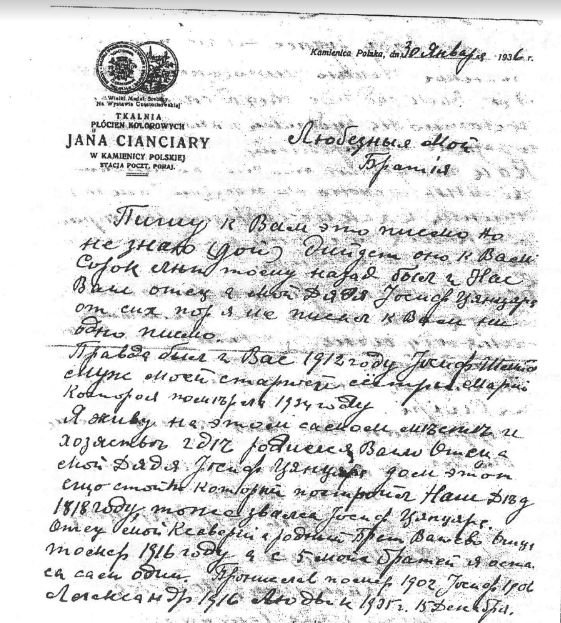 Wielki Medal Srebrny
Na Wystawie Częstochowskiej
TKALNIA
PŁÓCIEN KOLOROWYCH
JANA CIANCIARY
W KAMIENICY POLSKIEJ
STACJA POCZT. PORAJ.
Kamienica Polska, dn. 30 Января 1936 r.
Любезныя Мои
Братiя
Пишу к Вам это письмо но
не знаю (дой) дийдет оно к Вам
Сорок лет тому назад был у Нас
Ваш отец а мой Дядя Иосиф Цянцяра
от сих пор я не писал к Вам ни
одно письмо.
Правда был у Вас 1912 году Иосиф
муж моей старшей сёстры Марии
которая помѣрла 1934 году
Я живу на этом самом мѣстѣ и
хозяство гдѣ родился Ваш Отец а
мой Дядя Иосиф Цянцяра дом этот
ещо стоит который построил Наш Дѣд
1818 году тоже звался Иосиф Цянцяра.
Отец мой Ксаверий а родний Брат Вашево Отца
помер 1916 году а с 5 моих братей я оста
ся сам один. Бронислав помер 1902 Иосиф 1906
Александр 1916 Людвик 1935 г. 15 Декабря.